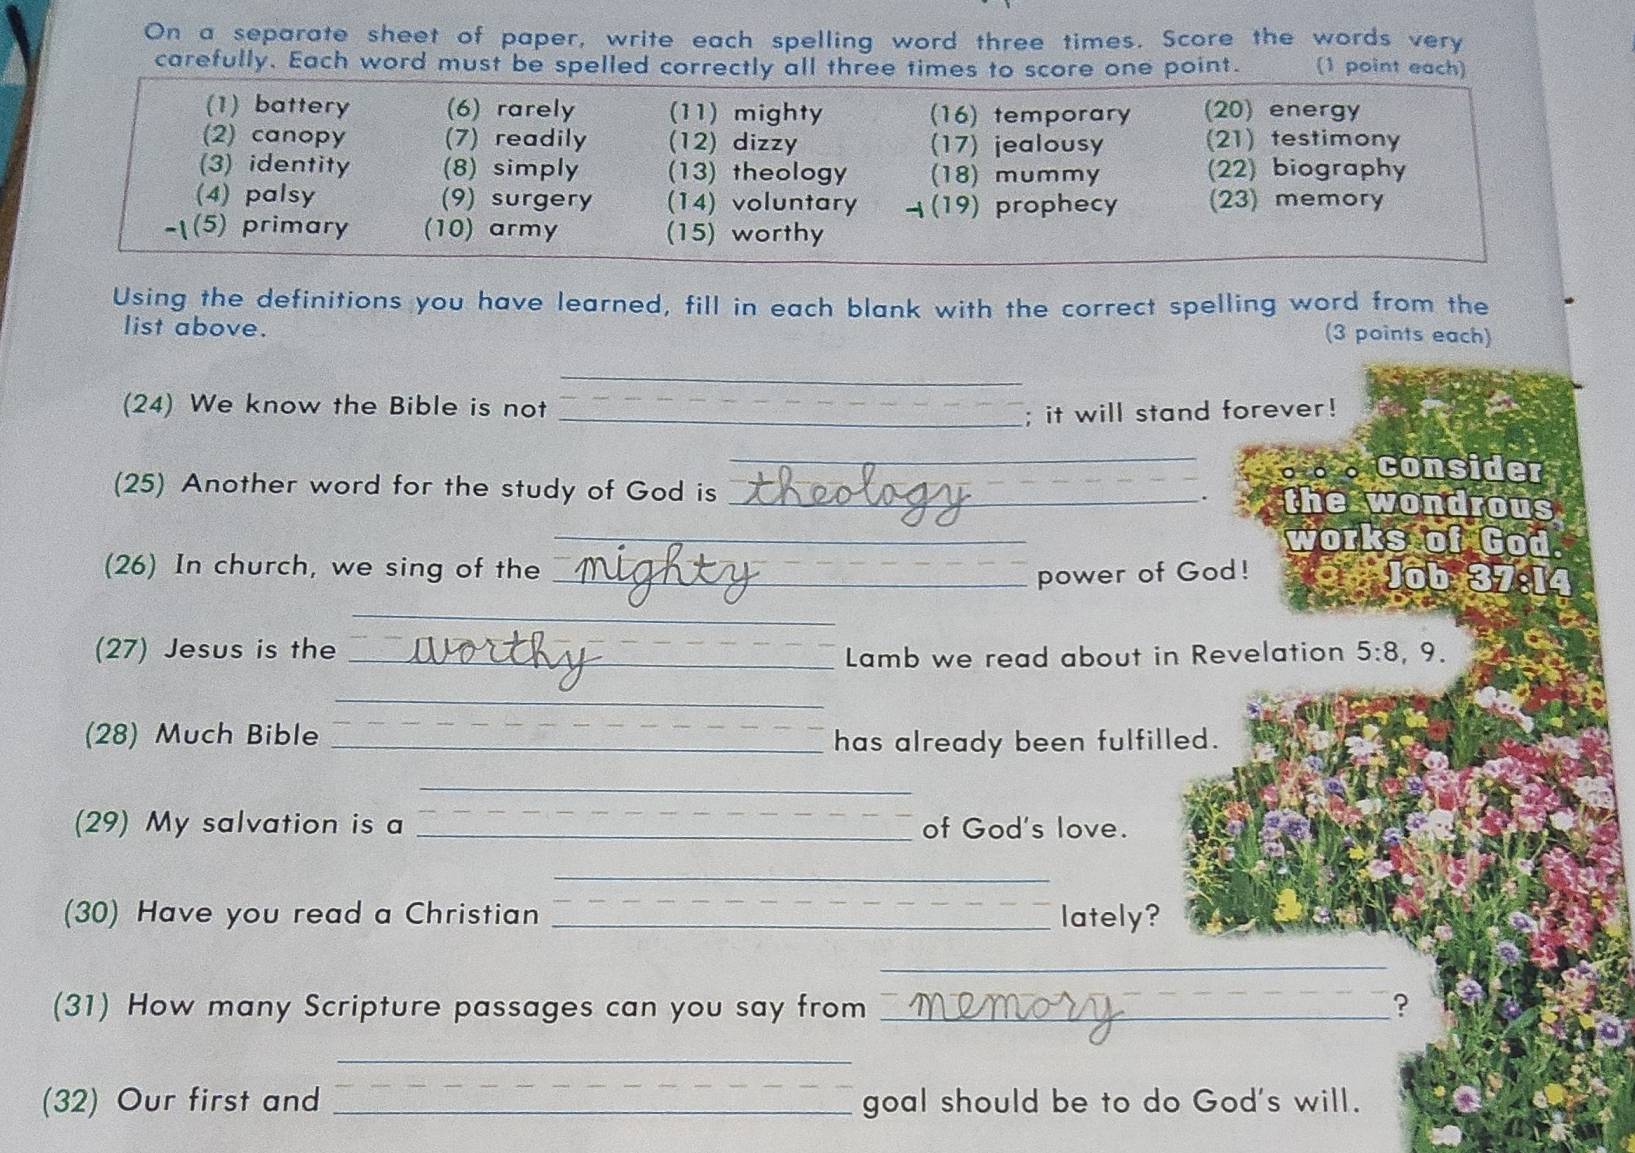 On a separate sheet of paper, write each spelling word three times. Score the words very
carefully. Each word must be spelled correctly all three times to score one point. (1 point each)
(1) battery (6) rarely (11) mighty (16) temporary (20) energy
(2) canopy (7) readily (12) dizzy (17) jealousy (21) testimony
(3) identity (8) simply (13) theology (18) mummy (22) biography
(4) palsy (9) surgery (14) voluntary -1 (19) prophecy (23) memory
-1 (5) primary (10) army (15) worthy
Using the definitions you have learned, fill in each blank with the correct spelling word from the
list above. (3 points each)
(24) We know the Bible is not ; it will stand forever!
(25) Another word for the study of God is theology .
(26) In church, we sing of the mighty power of God!
(27) Jesus is the worthy Lamb we read about in Revelation 5:8, 9.
(28) Much Bible has already been fulfilled.
(29) My salvation is a of God's love.
(30) Have you read a Christian lately?
(31) How many Scripture passages can you say from memory ?
(32) Our first and goal should be to do God's will.
. . . consider
the wondrous
works of God.
Job 37:14